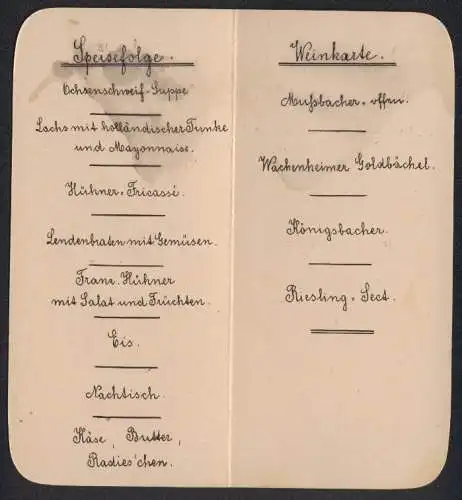 Speisefolge.
Ochsenschweif-Suppe
Lachs mit holländischer Tunke
und Mayonnaise.
Hühner-Fricassé.
Lendenbraten mit Gemüsen.
Franz. Hühner
mit Salat und Früchten.
Eis.
Nachtisch.
Käse, Butter,
Radies'chen.
Weinkarte.
Mußbacher-offen.
Wachenheimer Goldbächel.
Königsbacher.
Riesling-Sect.